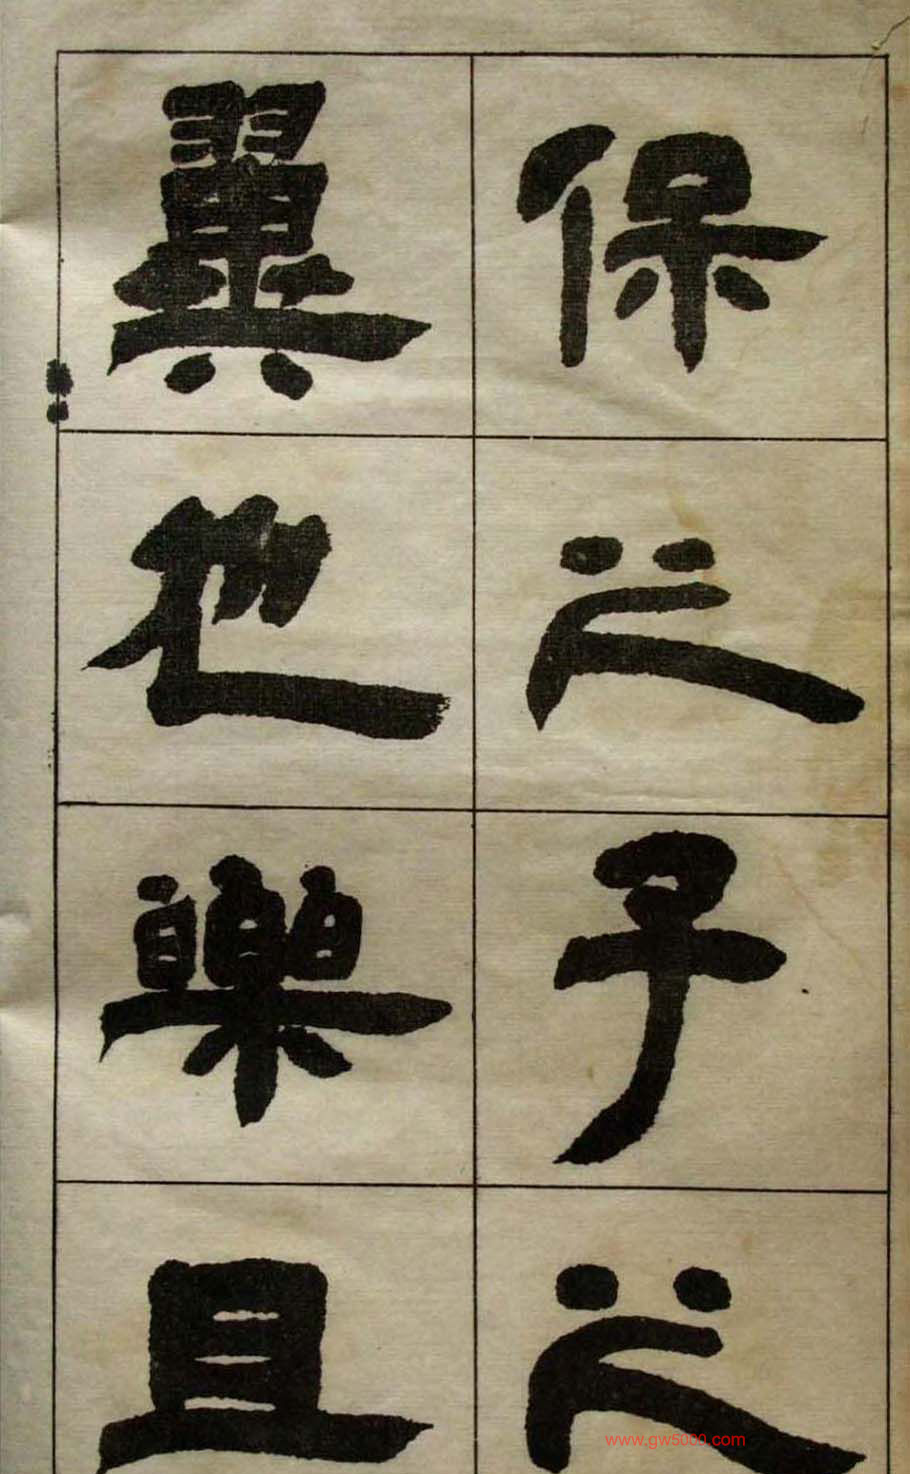 保之子之
翼也樂且
www.gw5000.com